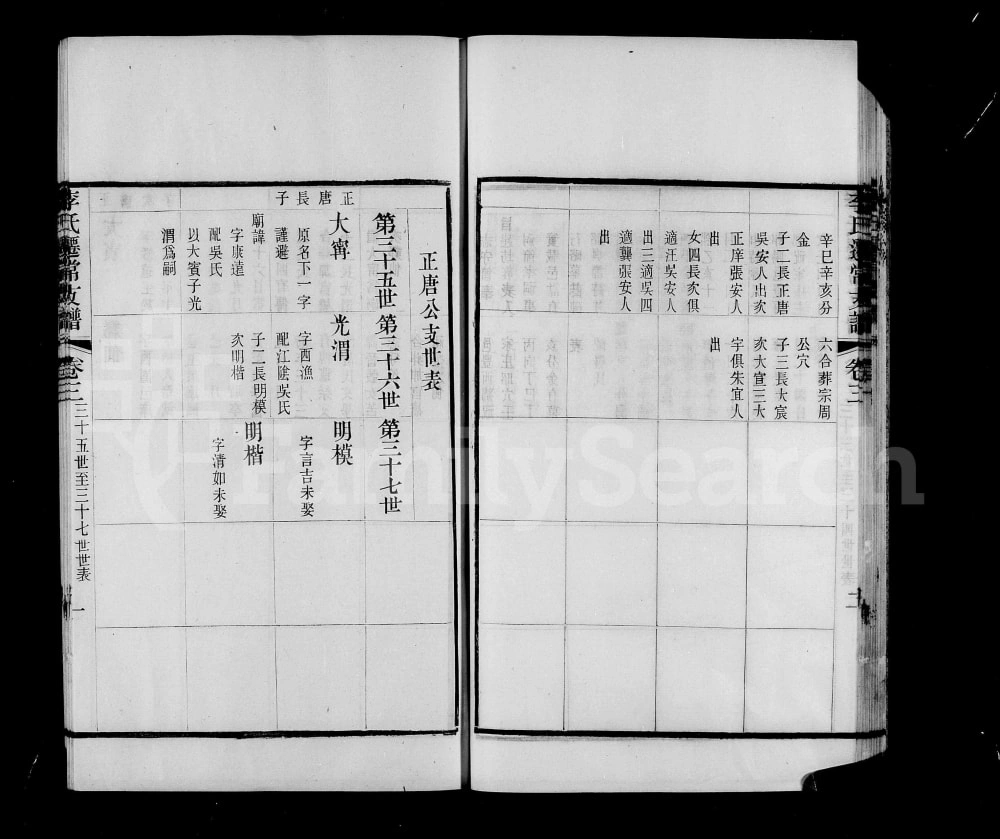 李氏遷常支譜
卷三
二
辛巳辛亥分
金
子二長正唐
吳安人出次
正庠張安人
出
女四長次俱
適汪吳安人
出三適吳四
適龔張安人
出
六合葬宗周
公穴
子三長大宸
次大宣三大
字俱朱宜人
出
正唐公支世表
第三十五世
第三十六世
第三十七世
正唐長子
大甯
原名下一字
謹避
廟諱
字康遠
配吳氏
以大賓子光
渭爲嗣
光渭
字西漁
配江陰吳氏
子二長明模
次明楷
明模
字言吉未娶
明楷
字清如未娶
李氏遷常支譜
卷三
三十五世至三十七世世表
一
FamilySearch